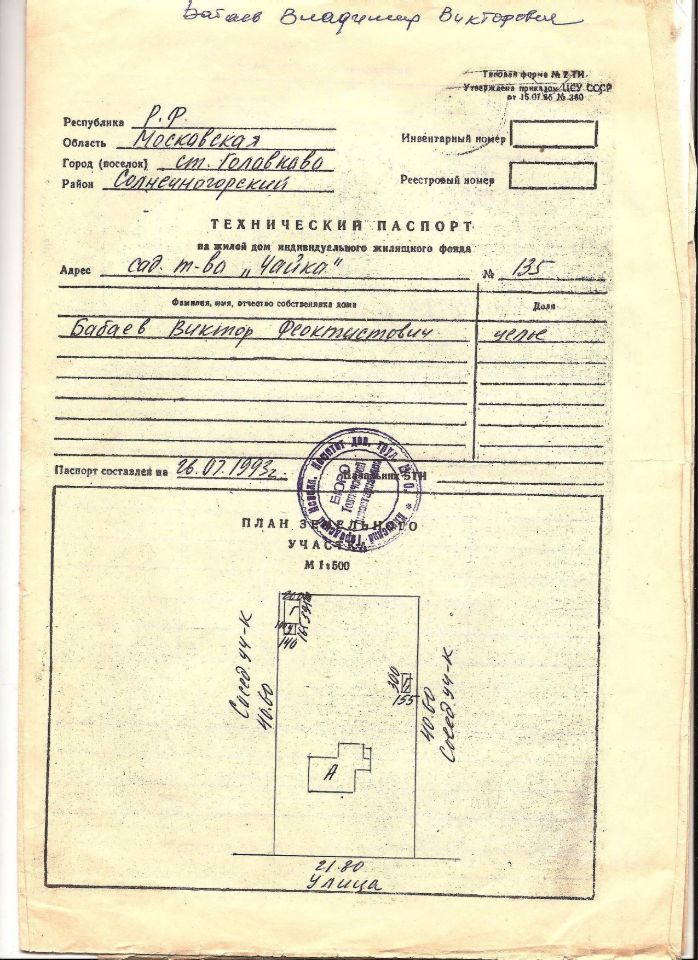 Бабаев Владимир Викторович
Типовая форма № 2-ТИ
Утверждена приказом ЦСУ СССР
от 15.07.85 № 380
Республика Р.Ф.
Область Московская
Город (поселок) ст. Головкова
Район Солнечногорский
Инвентарный номер
Реестровый номер
ТЕХНИЧЕСКИЙ ПАСПОРТ
на жилой дом индивидуального жилищного фонда
Адрес сад. т-во „Чайка" № 135
Фамилия, имя, отчество собственника дома Доля
Бабаев Виктор Феоктистович целое
Паспорт составлен на 26.07.1993г. Начальник БТИ
БЮРО
ПЛАН ЗЕМЕЛЬНОГО
УЧАСТКА
М 1:500
Г
140
Сосед уч-к
40.60
300
155
40.60
Сосед уч-к
А
21.80
Улица